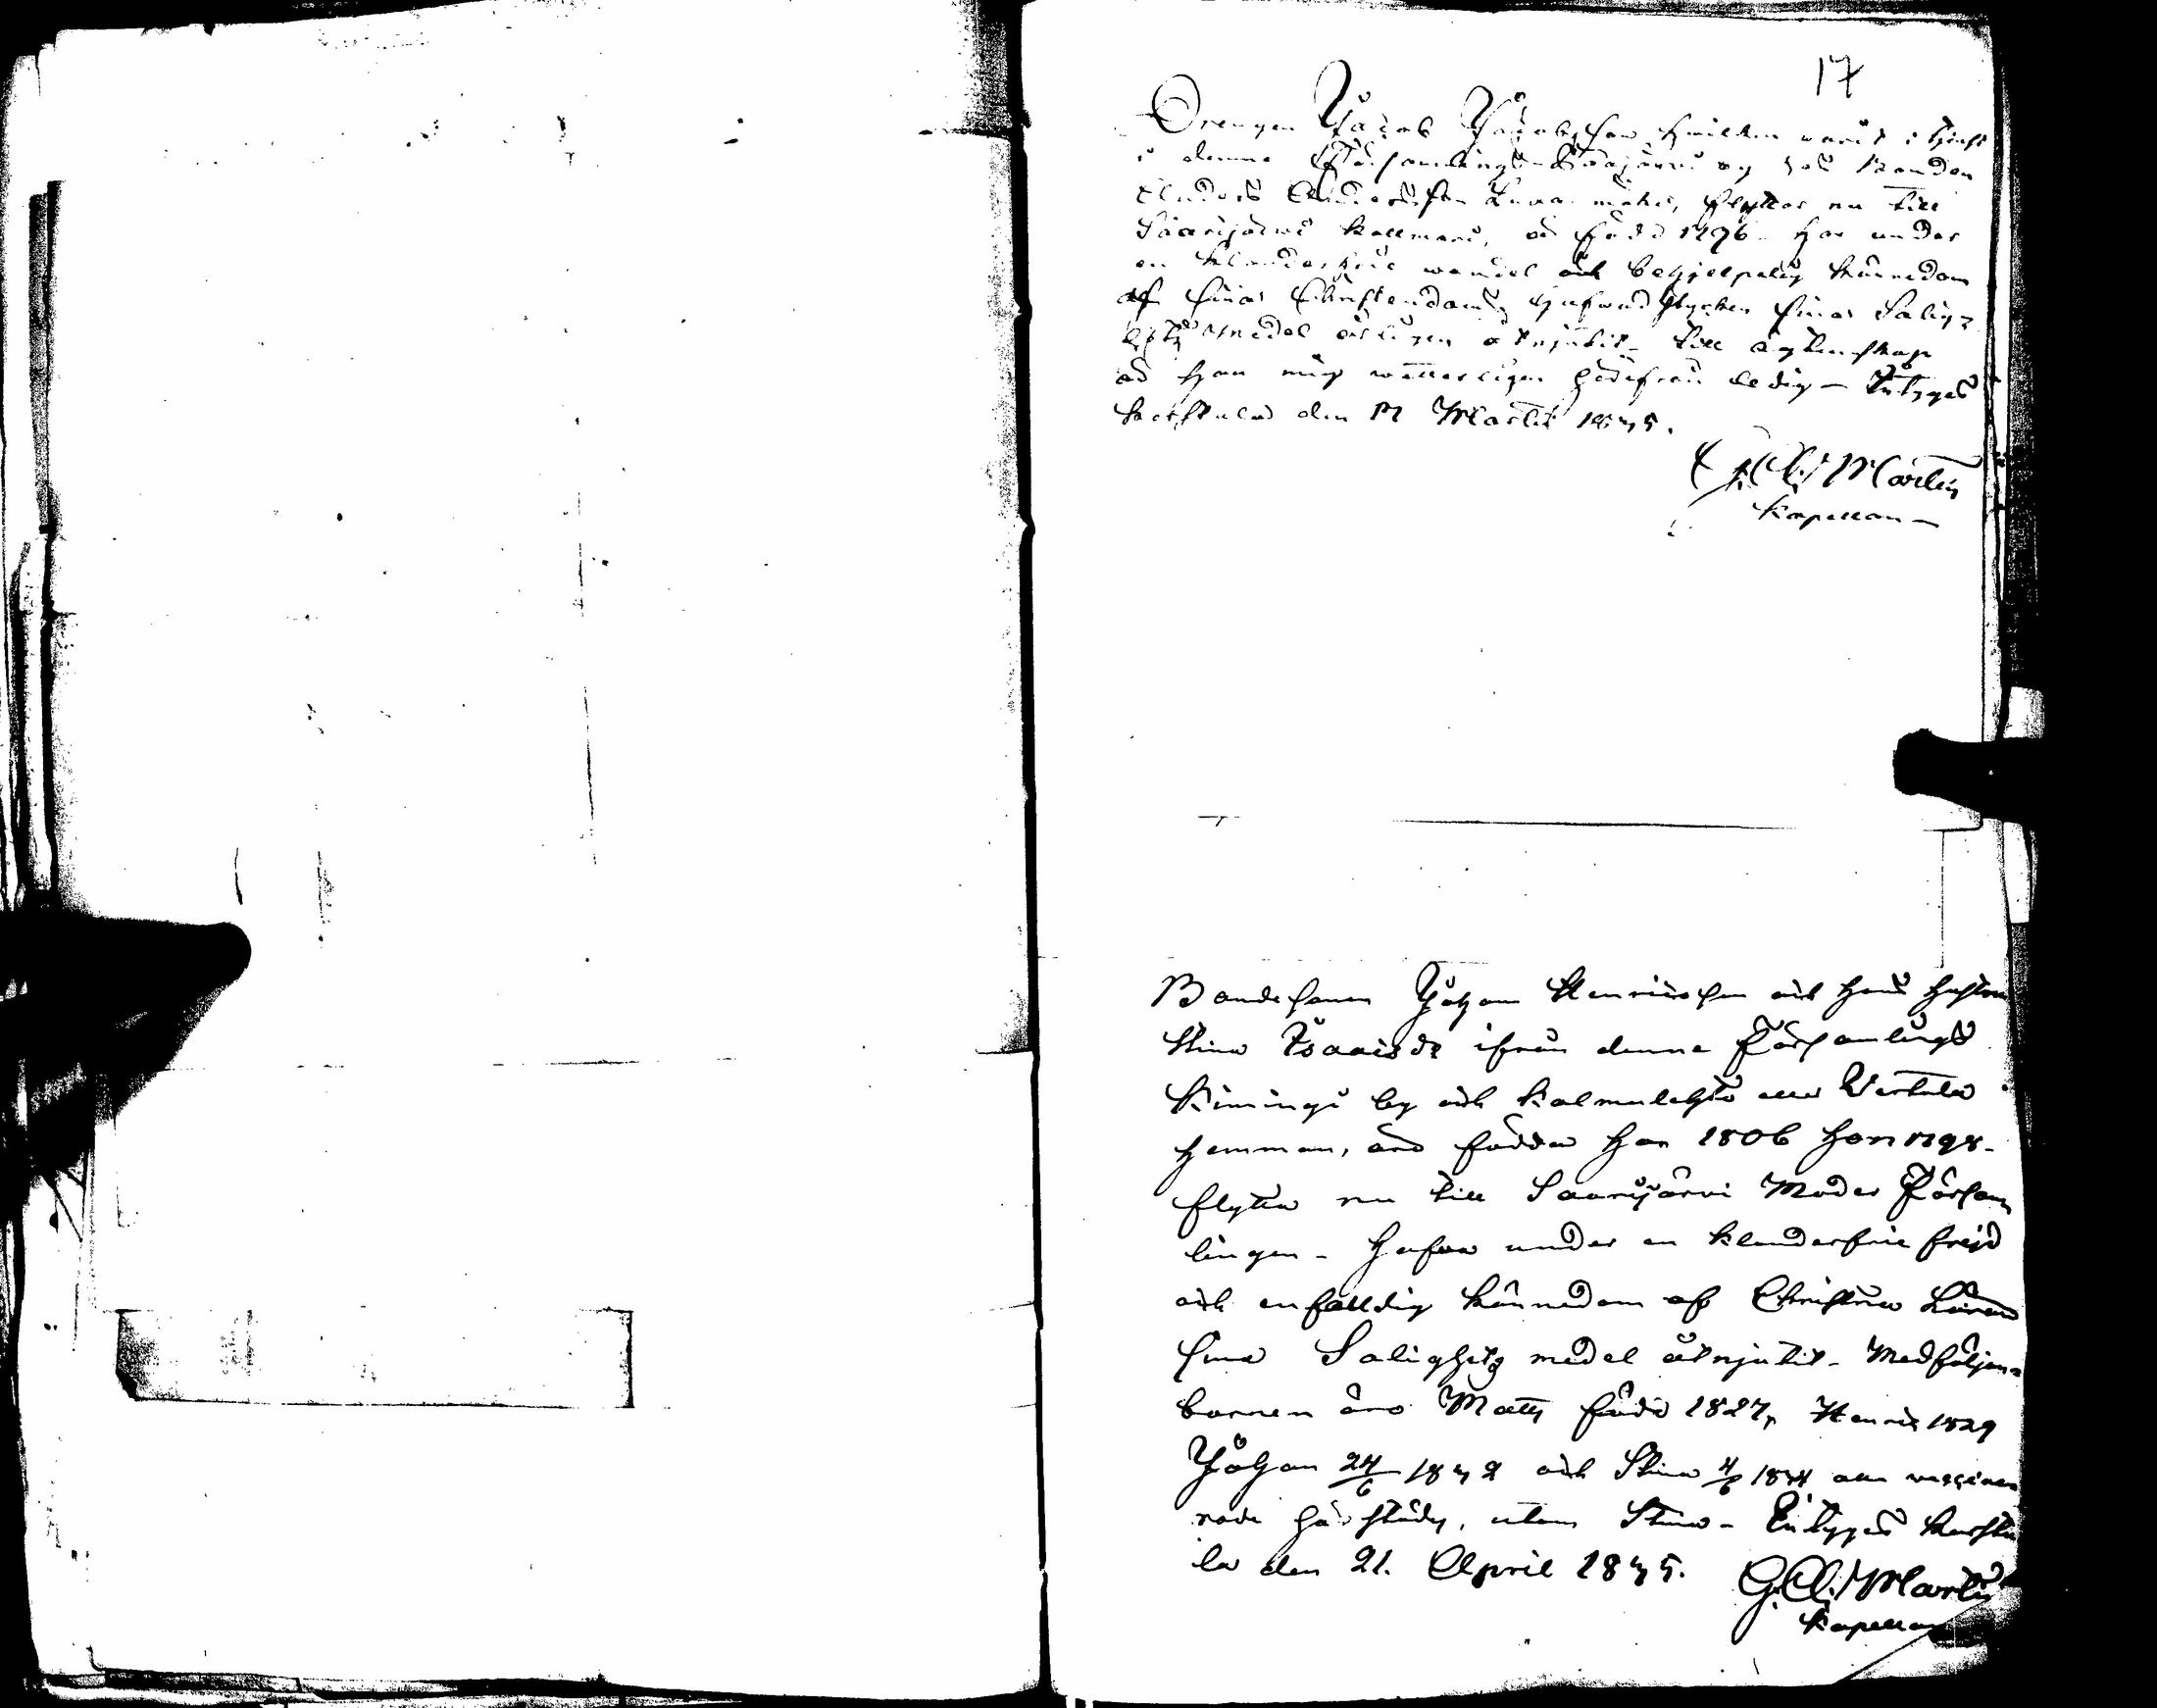 17
Drengen Jacob Jacobsson hwilken warit i tjenst
i denna Församlings by hos Bonden
Anders Andersson mäki, flyttar nu till
Saarijärvi Kallmari, är född 1796. Har under
en klanderfrie wandel och behjelpelig kännedom
af sina Christendoms hufwudstycken sina Salig-
hets medel årligen åtnjutit. till ägtenskap
är han mig wetterligen hädifrån ledig – Intygas
Karstula den 12 Martii 1835.
G. A. Martin
Kapellan
Bondesonen Johan Henricsson och hans hustru
Stina Isaacsdr ifrån denna Församlings
Kiminge by och Kalmulehto eller Wertala
hemman, äro födde han 1806 hon 1798.
flytta nu till Saarijärvi Moder Försam
lingen – Hafwa under en klanderfrie frejd
och enfalldig kännedom af Christna Läran
sina Salighets medel åtnjutit. Medföljan-
barnen äro Matts född 1827, Henric 1829
Johan 24/6 1832 och Stina 4/6 1834 alla waccine
rade härstädes, utom Stina – Intygas Karstu
la den 21. April 1835.
G. A. Martin
Kapellan